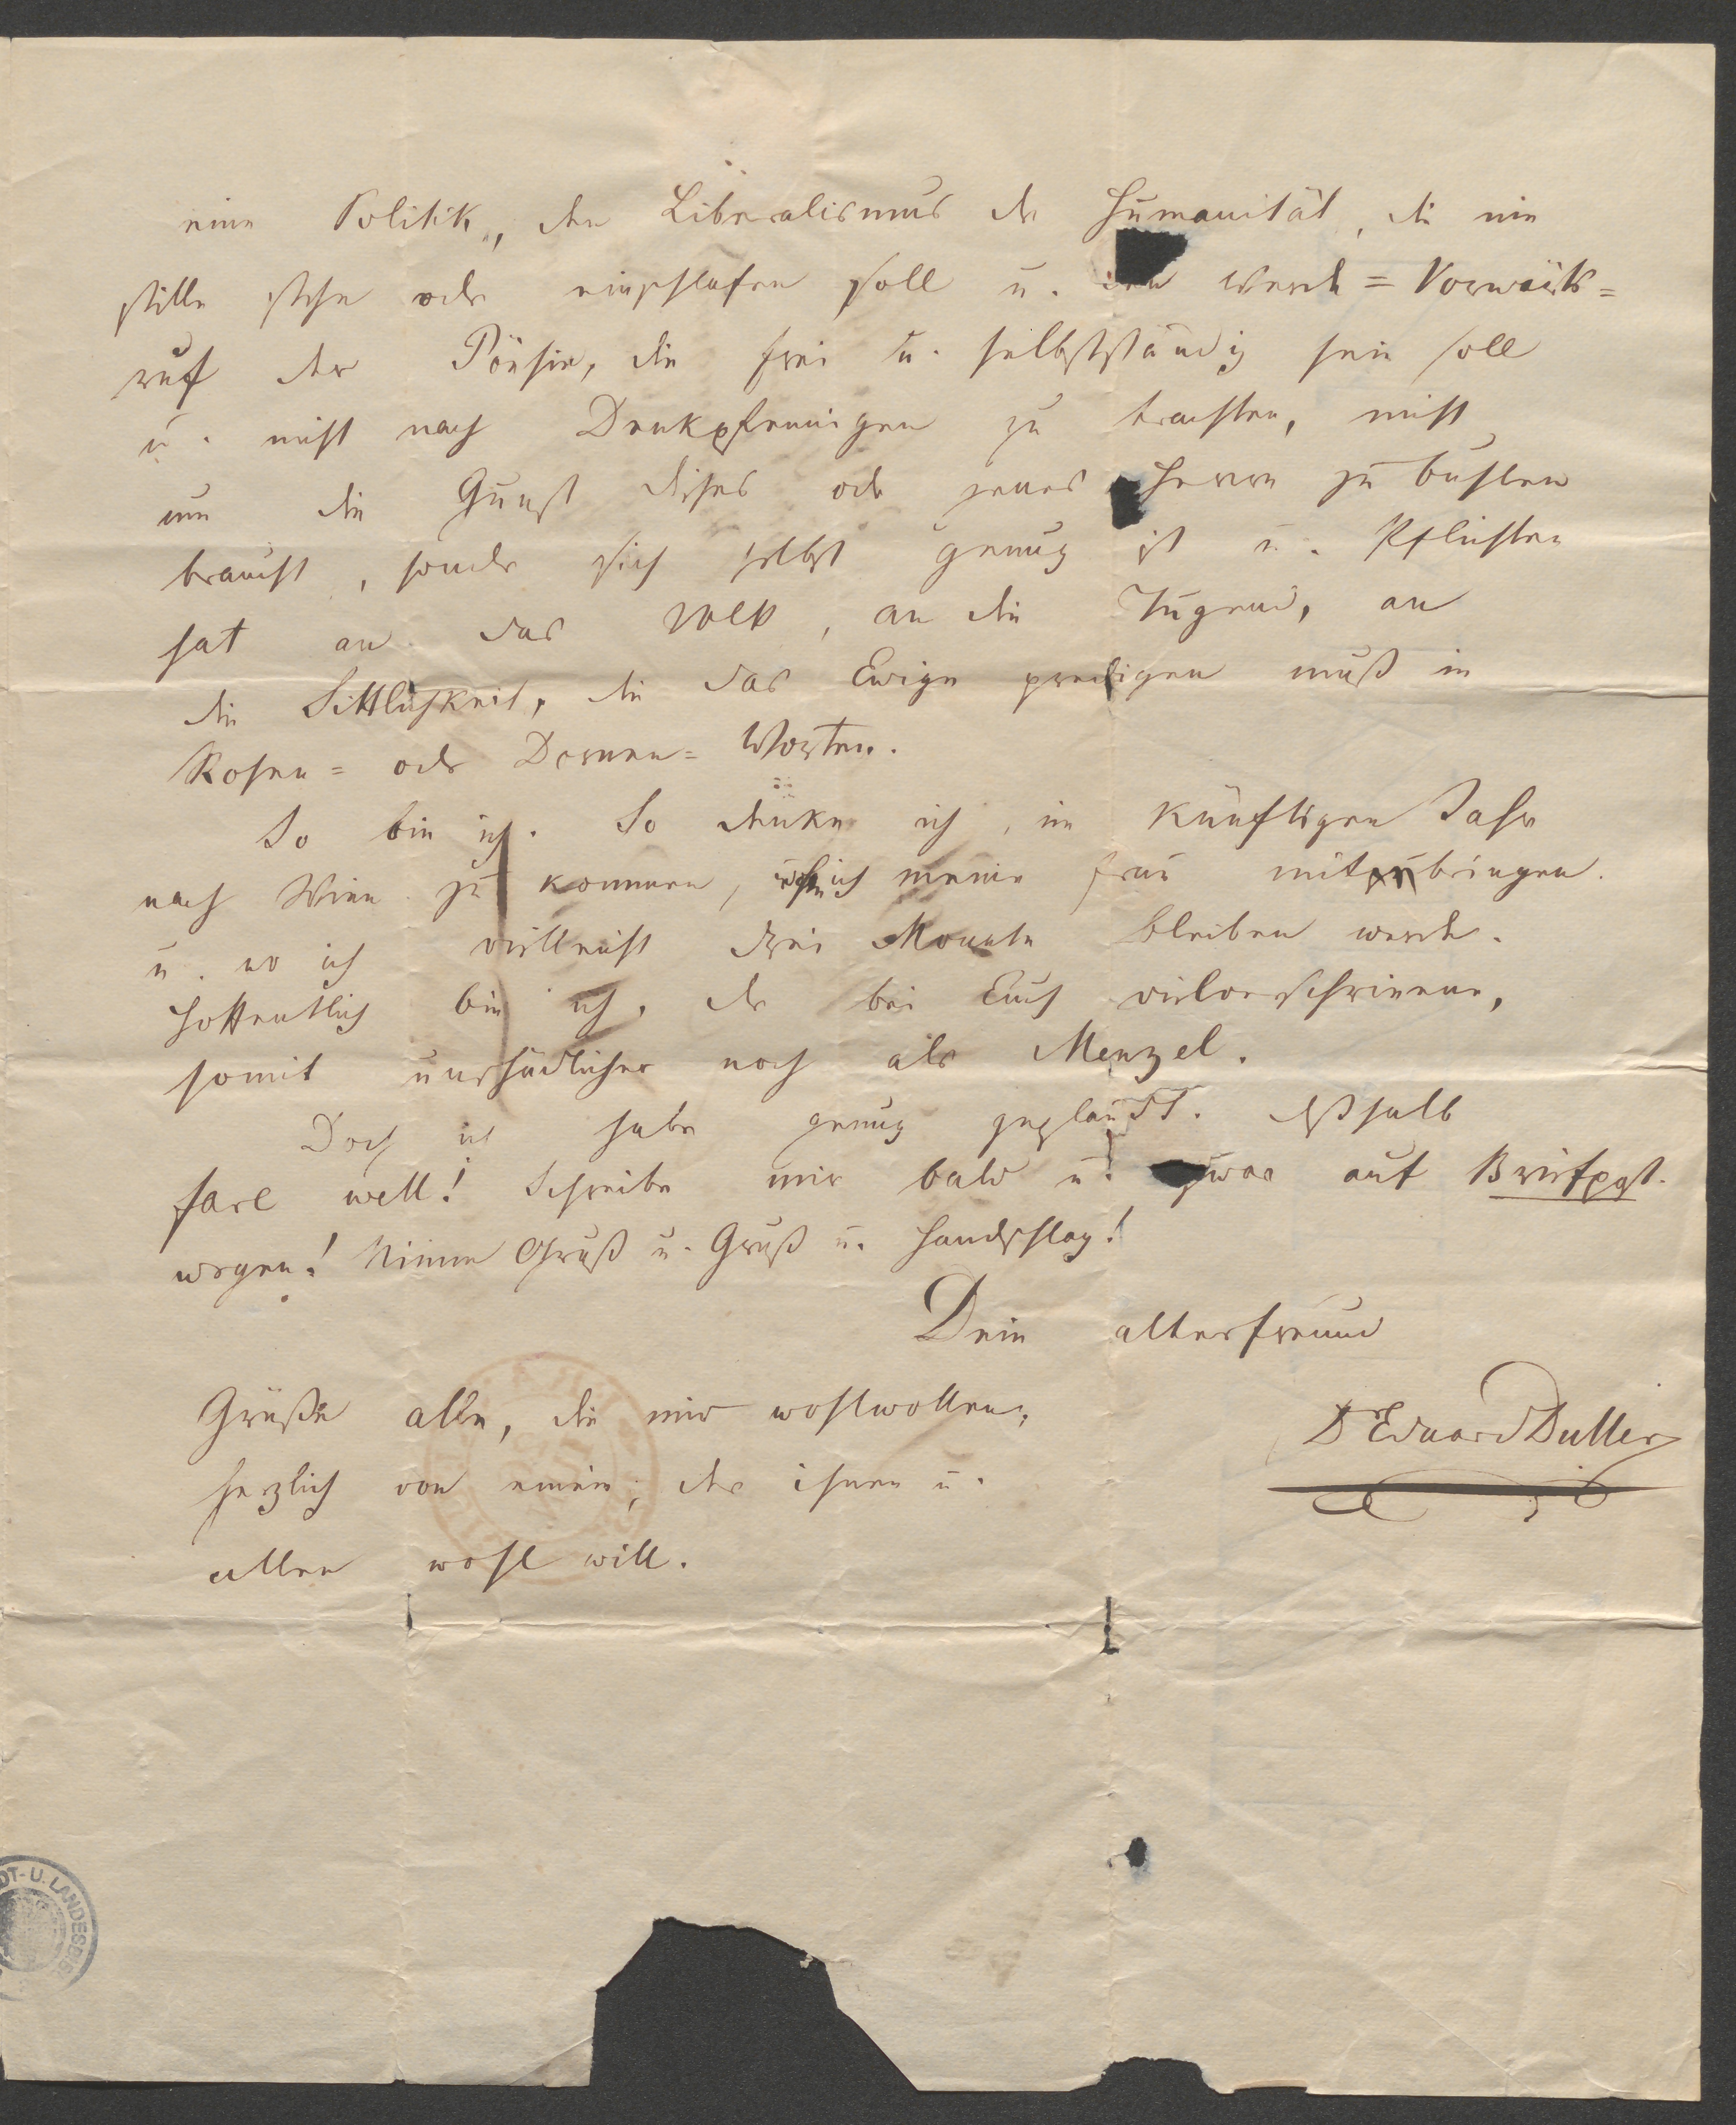 eine Politik, den Liberalismus der Humanität, die nie
stille stehn oder einschlafen soll u. den Werde= Vorwärts=
ruf der Pöesie, die frei u. selbstständig sein soll
u. nicht nach Denkpfennigen zu trachten, nicht
um die Gunst dieses oder jenes Herrn zu buhlen
braucht, sonder sich selbst genug ist u. Pflichten
hat an das Volk, an die Tugend, an
die Sittlichkeit, die das Ewige predigen muß in
Rosen= oder Dornen= Worten.
So bin ich. So denke ich, im künftigen Jahr
nach Wien zu kommen, wohin ich meine Frau mitzubringen.
u. wo ich villeicht drei Monate bleiben werde.
Hoffentlich bin ich, der bei Euch vielverschrieene,
somit unschädlicher noch als Menzel.
Doch ich habe genug geplaudt. Eßhalb
fare well! Schreibe mir bald u. zwar auf Briefpst.
wegen! Nimm Gruß u. Gruß u. Handschlag!
Dein alter Freund
Dr Eduard Duller
Grüße alle, die mir wohlwollen,
herzlich von einem, der ihnen u.
allen wohl will.
DT- U. LANDESBI